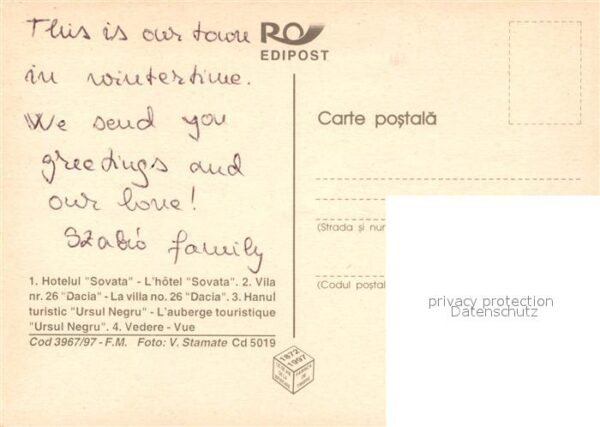 This is our town
in wintertime.
We send you
greetings and
our love!
Szabó family
RO
EDIPOST
Carte poştală
(Strada şi nu
(Codul poştal
1. Hotelul "Sovata" - L'hôtel "Sovata". 2. Vila
nr. 26 "Dacia" - La villa no. 26 "Dacia". 3. Hanul
turistic "Ursul Negru" - L'auberge touristique
"Ursul Negru". 4. Vedere - Vue
Cod 3967/97 - F.M. Foto: V. Stamate Cd 5019
1872
1997
privacy protection
Datenschutz